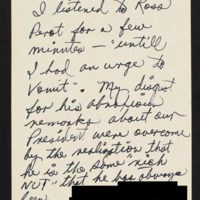 I listened to Ross
Perot for a few
minutes — "untill
I had an urge to
Vomit". My disgust
for his abnoxious
remarks about our
President were overcome
by the realization that
he is the same "rich
NUT" that he has always
been